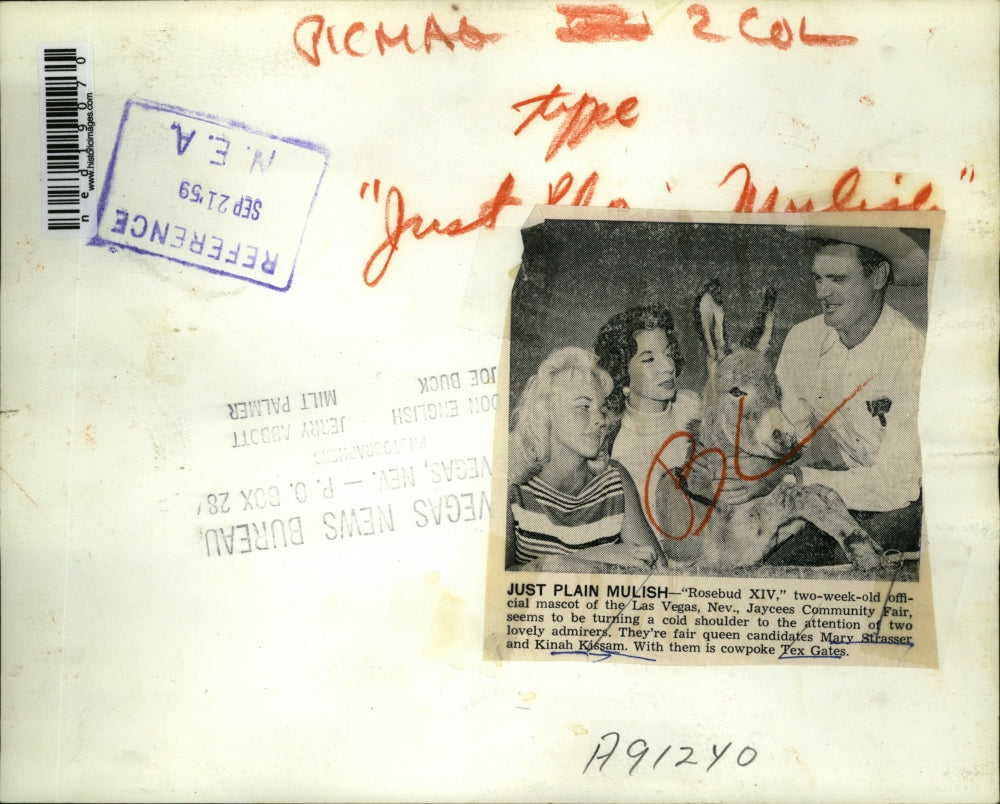 PICMAG 2 COL
type
"Just Plain Mulish"
ned19070
www.historicimages.com
N.E.A.
SEP 21 '59
REFERENCE
VEGAS NEWS BUREAU
VEGAS, NEV. — P. O. BOX 28
PHOTOGRAPHERS
DON ENGLISH JERRY ABBOTT
JOE BUCK MILT PALMER
BL
JUST PLAIN MULISH—"Rosebud XIV," two-week-old offi-
cial mascot of the Las Vegas, Nev., Jaycees Community Fair,
seems to be turning a cold shoulder to the attention of two
lovely admirers. They're fair queen candidates Mary Strasser
and Kinah Kissam. With them is cowpoke Tex Gates.
A91240